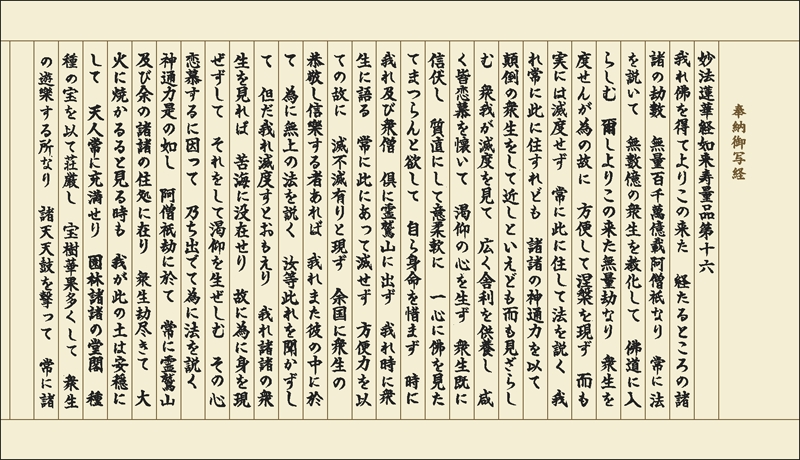 奉納御写経
妙法蓮華経如来寿量品第十六
我れ佛を得てよりこの来た　経たるところの諸
諸の劫數　無量百千萬億載阿僧祇なり　常に法
を説いて　無數億の衆生を教化して　佛道に入
らしむ　爾しよりこの来た無量劫なり　衆生を
度せんが為の故に　方便して涅槃を現ず　而も
実には滅度せず　常に此に住して法を説く　我
れ常に此に住すれども　諸諸の神通力を以て
顛倒の衆生をして近しといえども而も見ざらし
む　衆我が滅度を見て　広く舎利を供養し　咸
く皆恋慕を懐いて　渇仰の心を生ず　衆生既に
信伏し　質直にして意柔軟に　一心に佛を見た
てまつらんと欲して　自ら身命を惜まず　時に
我れ及び衆僧　俱に霊鷲山に出ず　我れ時に衆
生に語る　常に此にあって滅せず　方便力を以
ての故に　滅不滅有りと現ず　余国に衆生の
恭敬し信樂する者あれば　我れまた彼の中に於
て　為に無上の法を説く　汝等此れを聞かずし
て　但だ我れ滅度すとおもえり　我れ諸諸の衆
生を見れば　苦海に没在せり　故に為に身を現
ぜずして　それをして渇仰を生ぜしむ　その心
恋慕するに因って　乃ち出でて為に法を説く
神通力是の如し　阿僧祇劫に於て　常に霊鷲山
及び余の諸諸の住処に在り　衆生劫尽きて　大
火に焼かるると見る時も　我が此の土は安穏に
して　天人常に充満せり　園林諸諸の堂閣　種
種の宝を以て荘厳し　宝樹華果多くして　衆生
の遊樂する所なり　諸天天鼓を撃って　常に諸